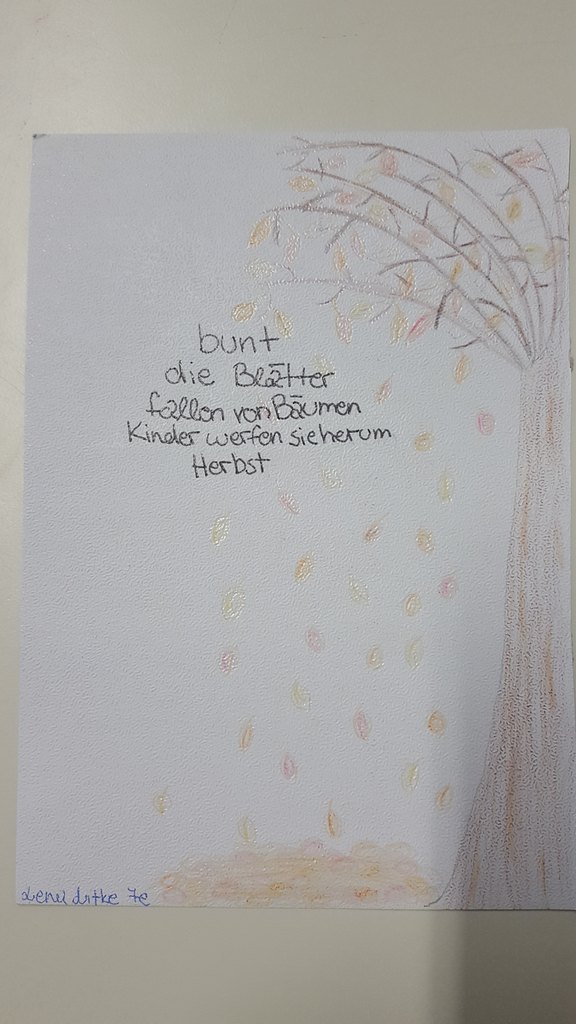 bunt
die Blätter
fallen von Bäumen
Kinder werfen sie herum
Herbst
Litke 7e